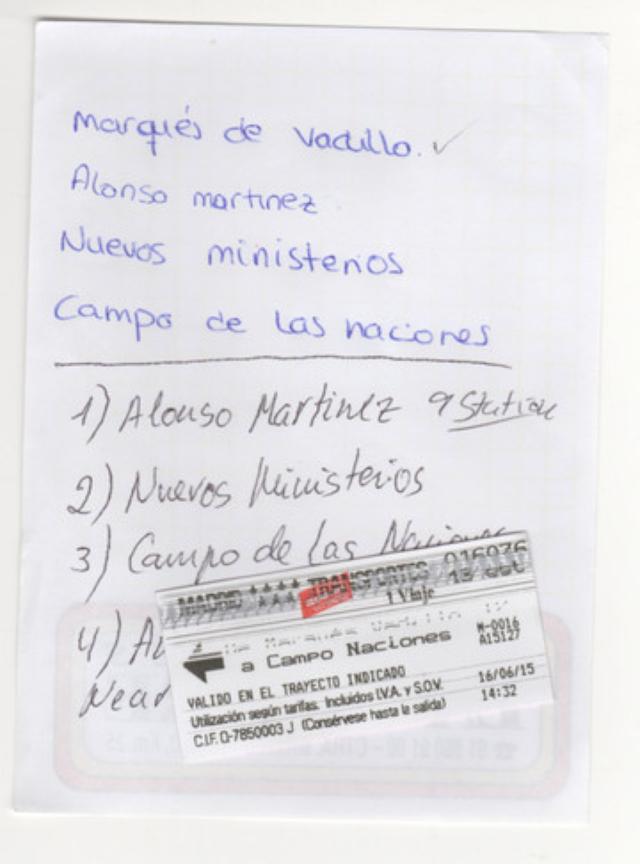 Marqués de Vadillo.
Alonso martinez
Nuevos ministerios
Campo de las naciones
1) Alonso Martinez 9 Station
2) Nuevos Ministerios
3) Campo de las Naciones
4)
Near
MADRID TRANSPORTES 016076
1 Viaje
De Marqués Vadillo
a Campo Naciones
M-0016
A15127
VALIDO EN EL TRAYECTO INDICADO
16/06/15
Utilización según tarifas. Incluidos I.V.A. y S.O.V.
14:32
C.I.F. O-7850003 J (Consérvese hasta la salida)